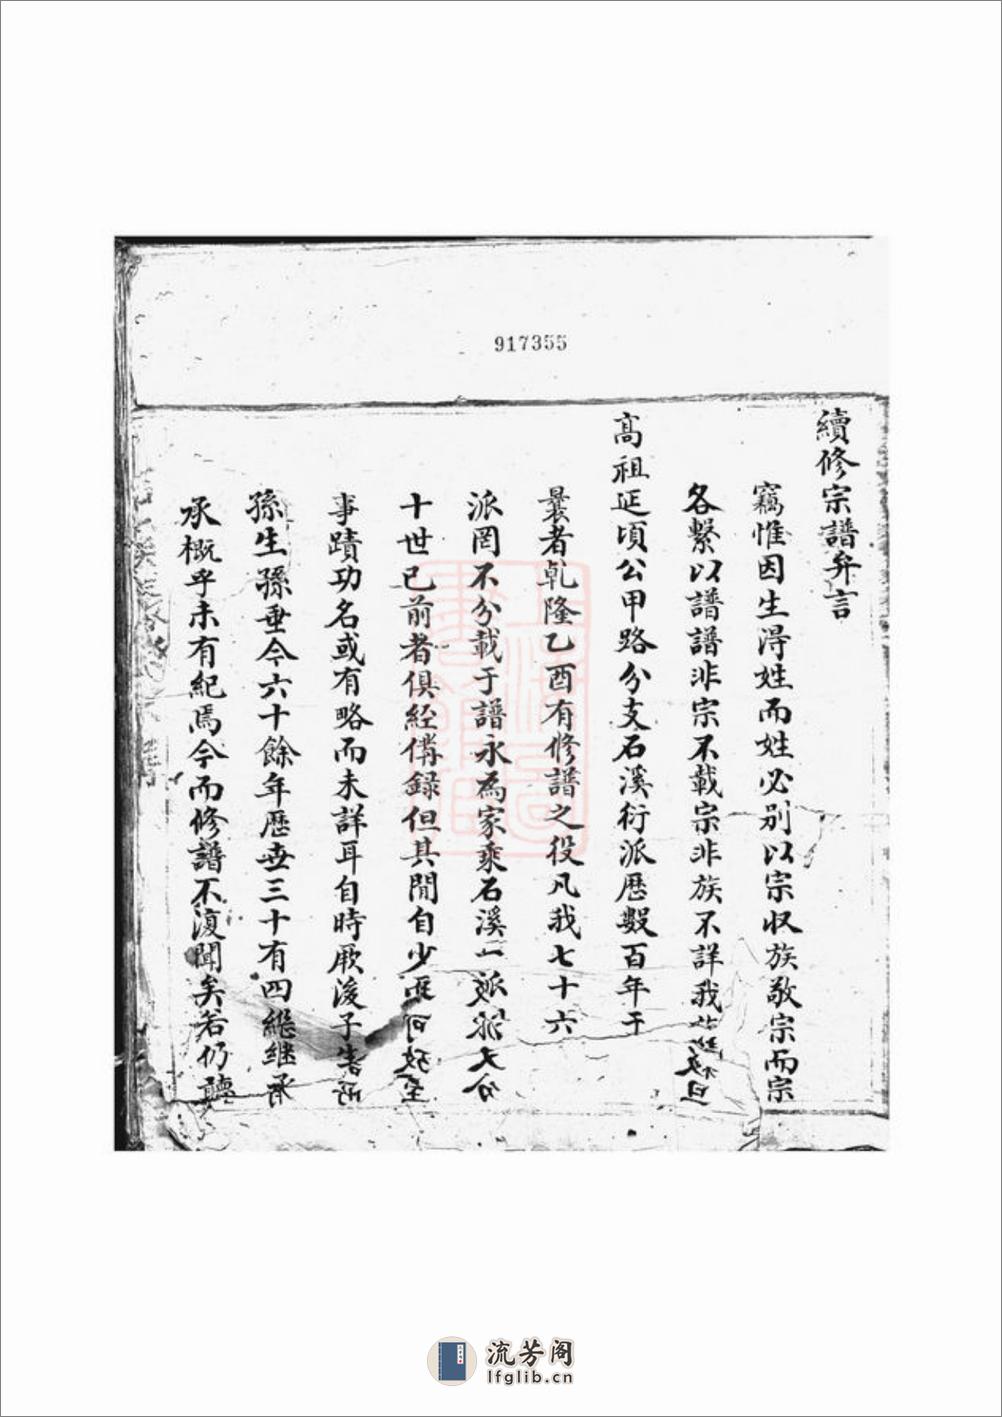 917355
續修宗譜弁言
竊惟因生得姓而姓必別以宗収族敬宗而宗
各繫以譜譜非宗不載宗非族不詳我
高祖延頃公甲路分支石溪衍派歷數百年于
曩者乾隆乙酉有修譜之役凡我七十六
派罔不分載于譜永為家乗石溪一派
十世已前者俱經備録但其間自少
事蹟功名或有略而未詳耳自時厥後子
孫生孫垂今六十餘年歷世三十有四繩繼承
承概乎未有紀焉今而修譜不復聞矣若仍聽
流芳阁
lfglib.cn